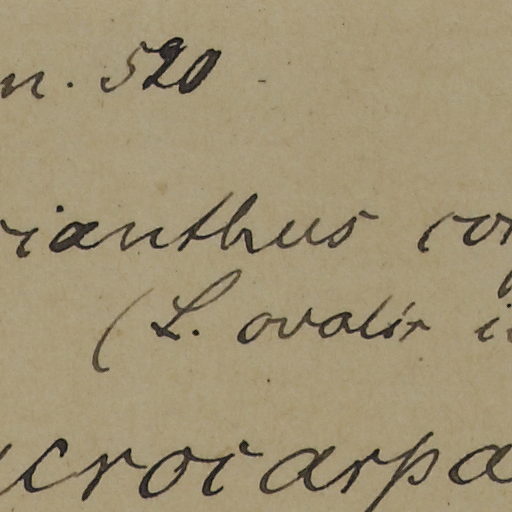 n. 520
ianthus co
(L. ovalis i
crocarpa